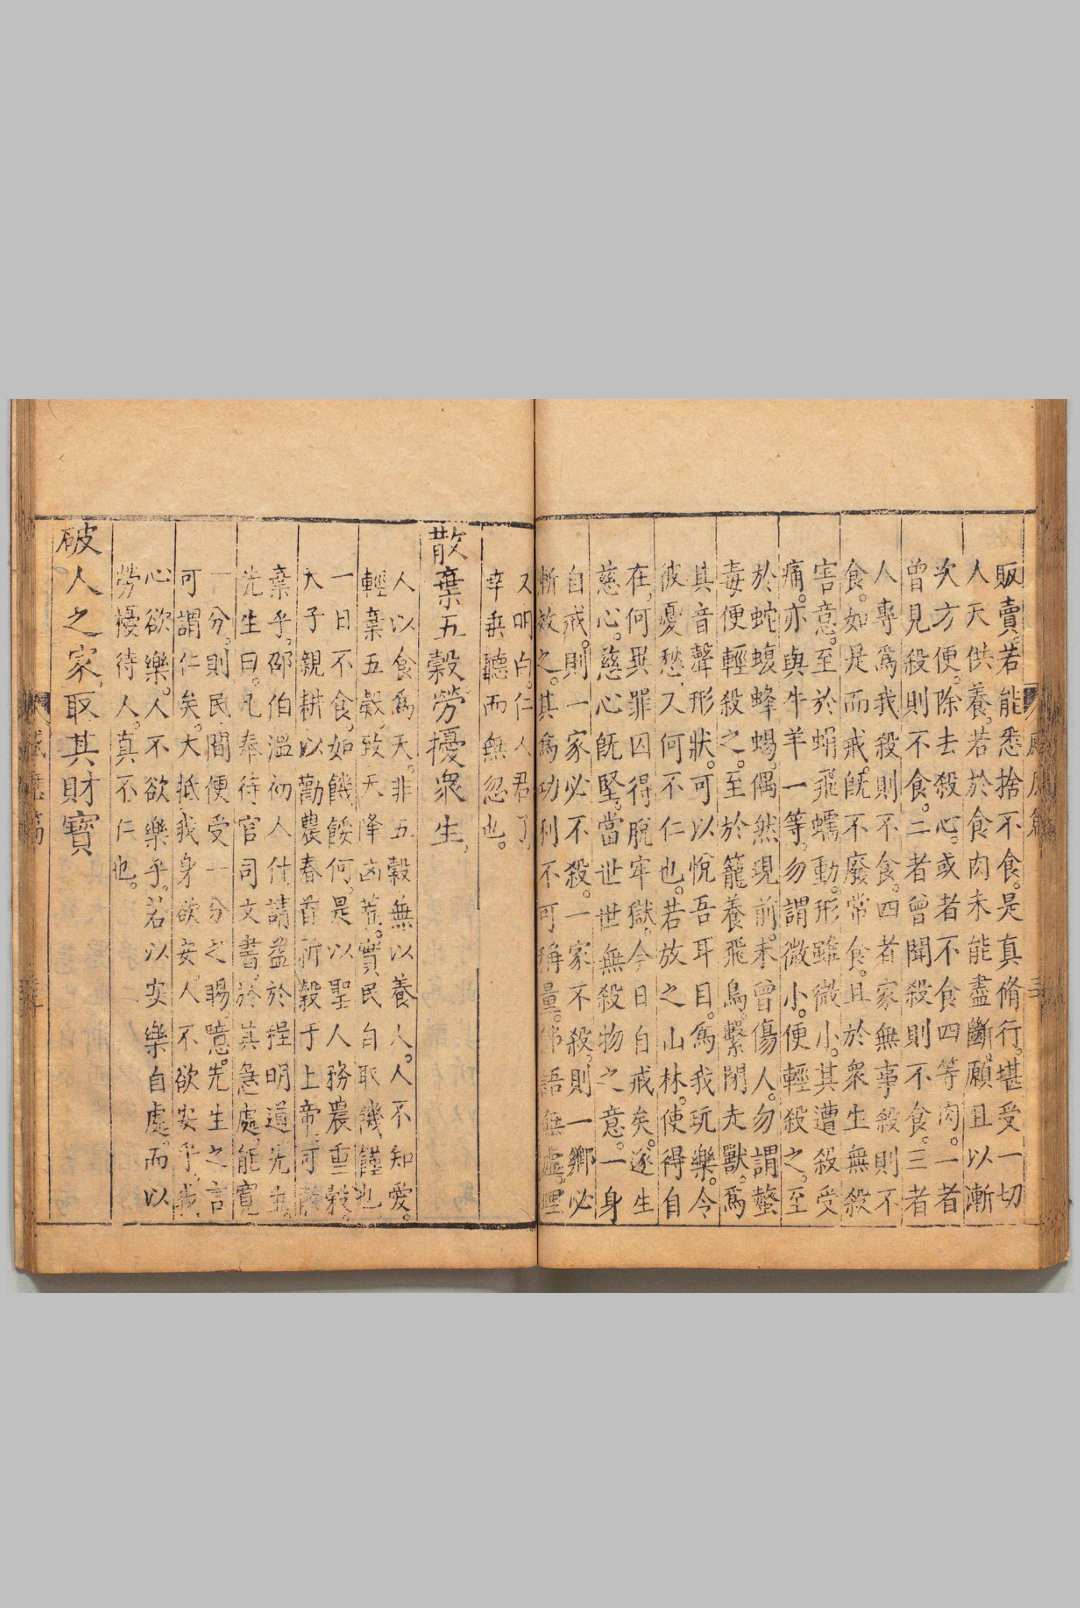 販賣若能悉捨不食。是真脩行。堪受一切
人天供養。若於食肉未能盡斷。願且以漸
次方便。除去殺心。或者不食四等肉。一者
曾見殺則不食。二者曾聞殺則不食。三者
人專為我殺則不食。四者家無事殺則不
食。如是而戒。旣不廢常食。且於衆生無殺
害意。至於蜎飛蠕動。形雖微小。其遭殺受
痛。亦與牛羊一等。勿謂微小。便輕殺之。至
於蛇蝮蜂蝎。偶然現前。未曾傷人。勿謂螫
毒便輕殺之。至於籠養飛鳥。繫閉走獸。爲
其音聲形狀。可以悅吾耳目。爲我玩樂。令
彼憂愁。又何不仁也。若放之山林。使得自
在。何異罪囚得脫牢獄。今日自戒矣。遂生
慈心。慈心旣堅。當世世無殺物之意。一身
自戒。則一家必不殺。一家不殺。則一鄉必
漸效之。其爲功利不可稱量。佛語無虛。理
又明白。仁人君子
幸垂聽而無忽也。
散棄五穀。勞擾衆生。
人以食爲天。非五穀無以養人。人不知愛。
輕棄五穀。致天降凶荒。實民自取饑饉也。
一日不食。如饑餒何。是以聖人務農重穀。
天子親耕以勸農。春首祈穀于上帝。可
棄乎。邵伯溫初入仕。請益於程明道先生。
先生曰。凡奉待官司文書。於其急處。能寬
一分。則民間便受一分之賜。噫。先生之言
可謂仁矣。大抵我身欲安。人不欲安乎。我
心欲樂。人不欲樂乎。若以安樂自處。而以
勞擾待人。真不仁也。
破人之家。取其財寶